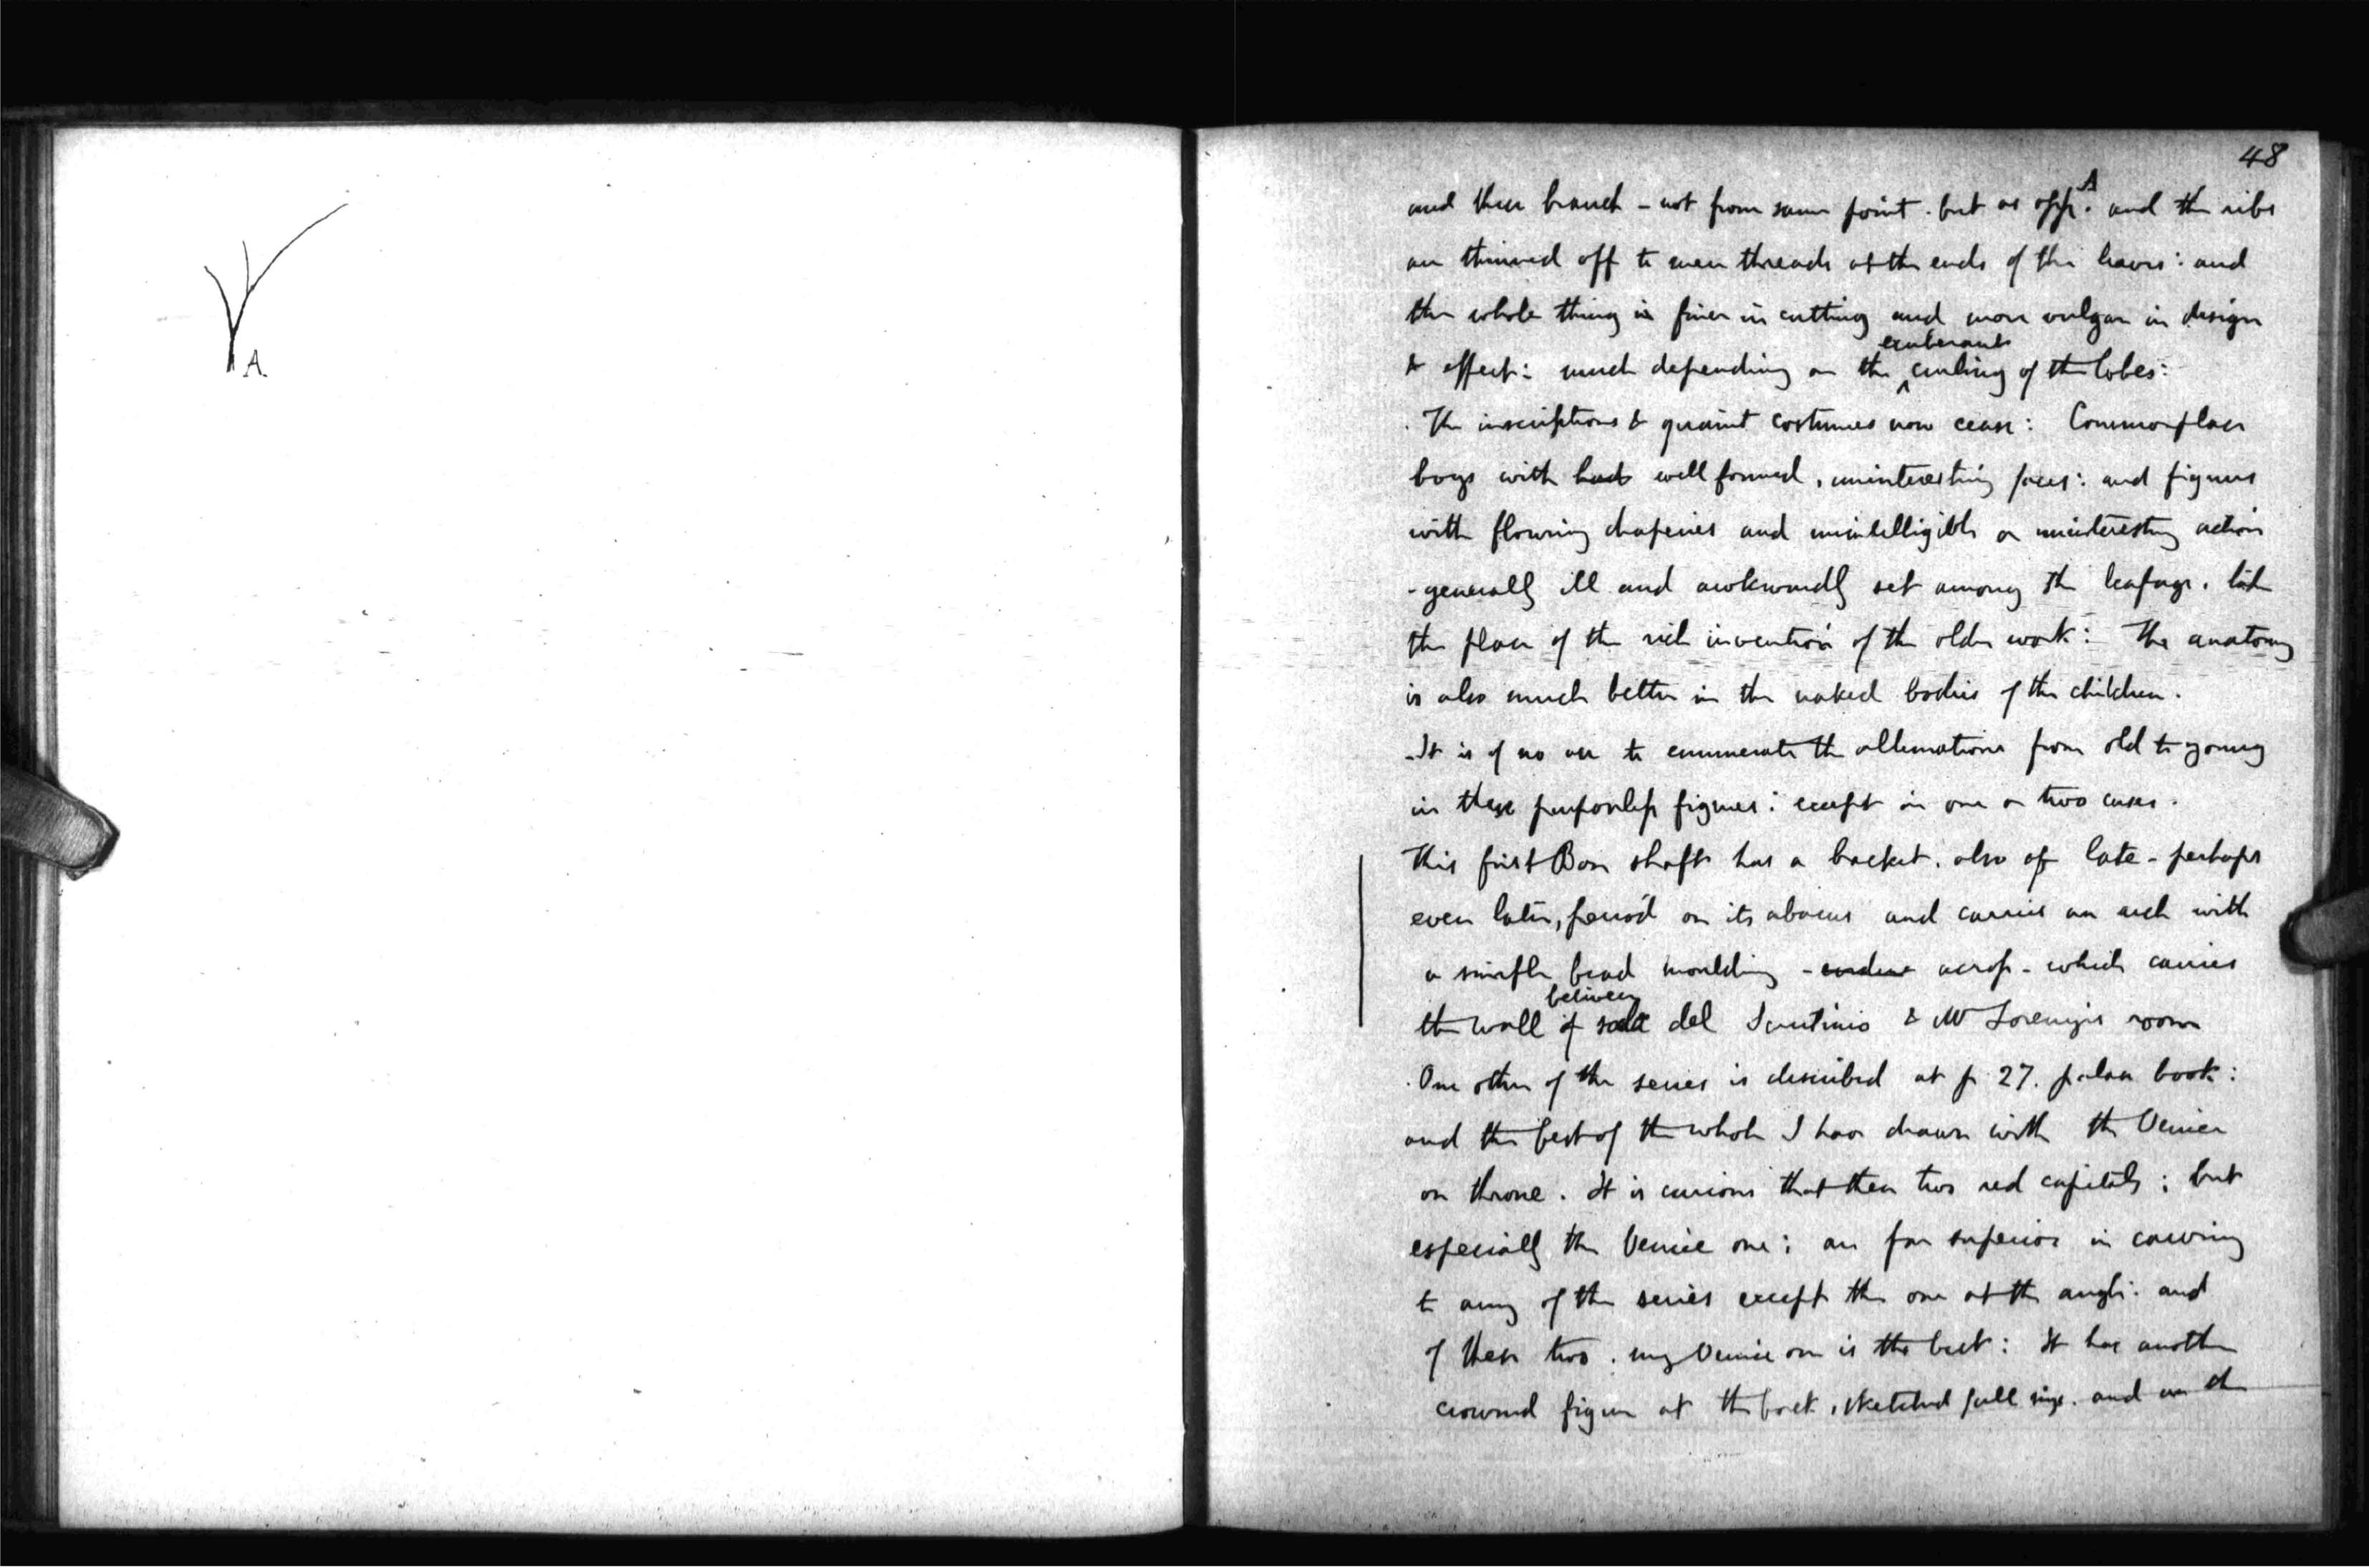 A.
48
and then branch - not from same point. but as opp. A and the ribs
are thinned off to mere threads at the ends of the leaves: and
the whole thing is finer in cutting and more vulgar in design
& effect: much depending on the exuberant curling of the lobes:
The inscriptions & quaint costumes now cease: Commonplace
boys with well formed, uninteresting faces: and figures
with flowing draperies and unintelligible or uninteresting action
- generally ill and awkwardly set among the leafage. take
the place of the rich invention of the older work: The anatomy
is also much better in the naked bodies of the children.
- It is of no use to enumerate the alternations from old to young
in these purposeless figures: except in one or two cases.
This first Bon shaft has a bracket. also of late - perhaps
even later, period on its abacus and carries an arch with
a simple bead moulding - across - which carries
the wall between sala del Scrutinio & Mr Lorenzi's room
One other of the series is described at p 27. palace book:
and the best of the whole I have drawn with the Venice
on throne. It is curious that these two red capitals; but
especially the Venice one; are far superior in carving
to any of the series except the one at the angle: and
of these two. my Venice one is the best: It has another
crowned figure at the back, sketched full size. and an